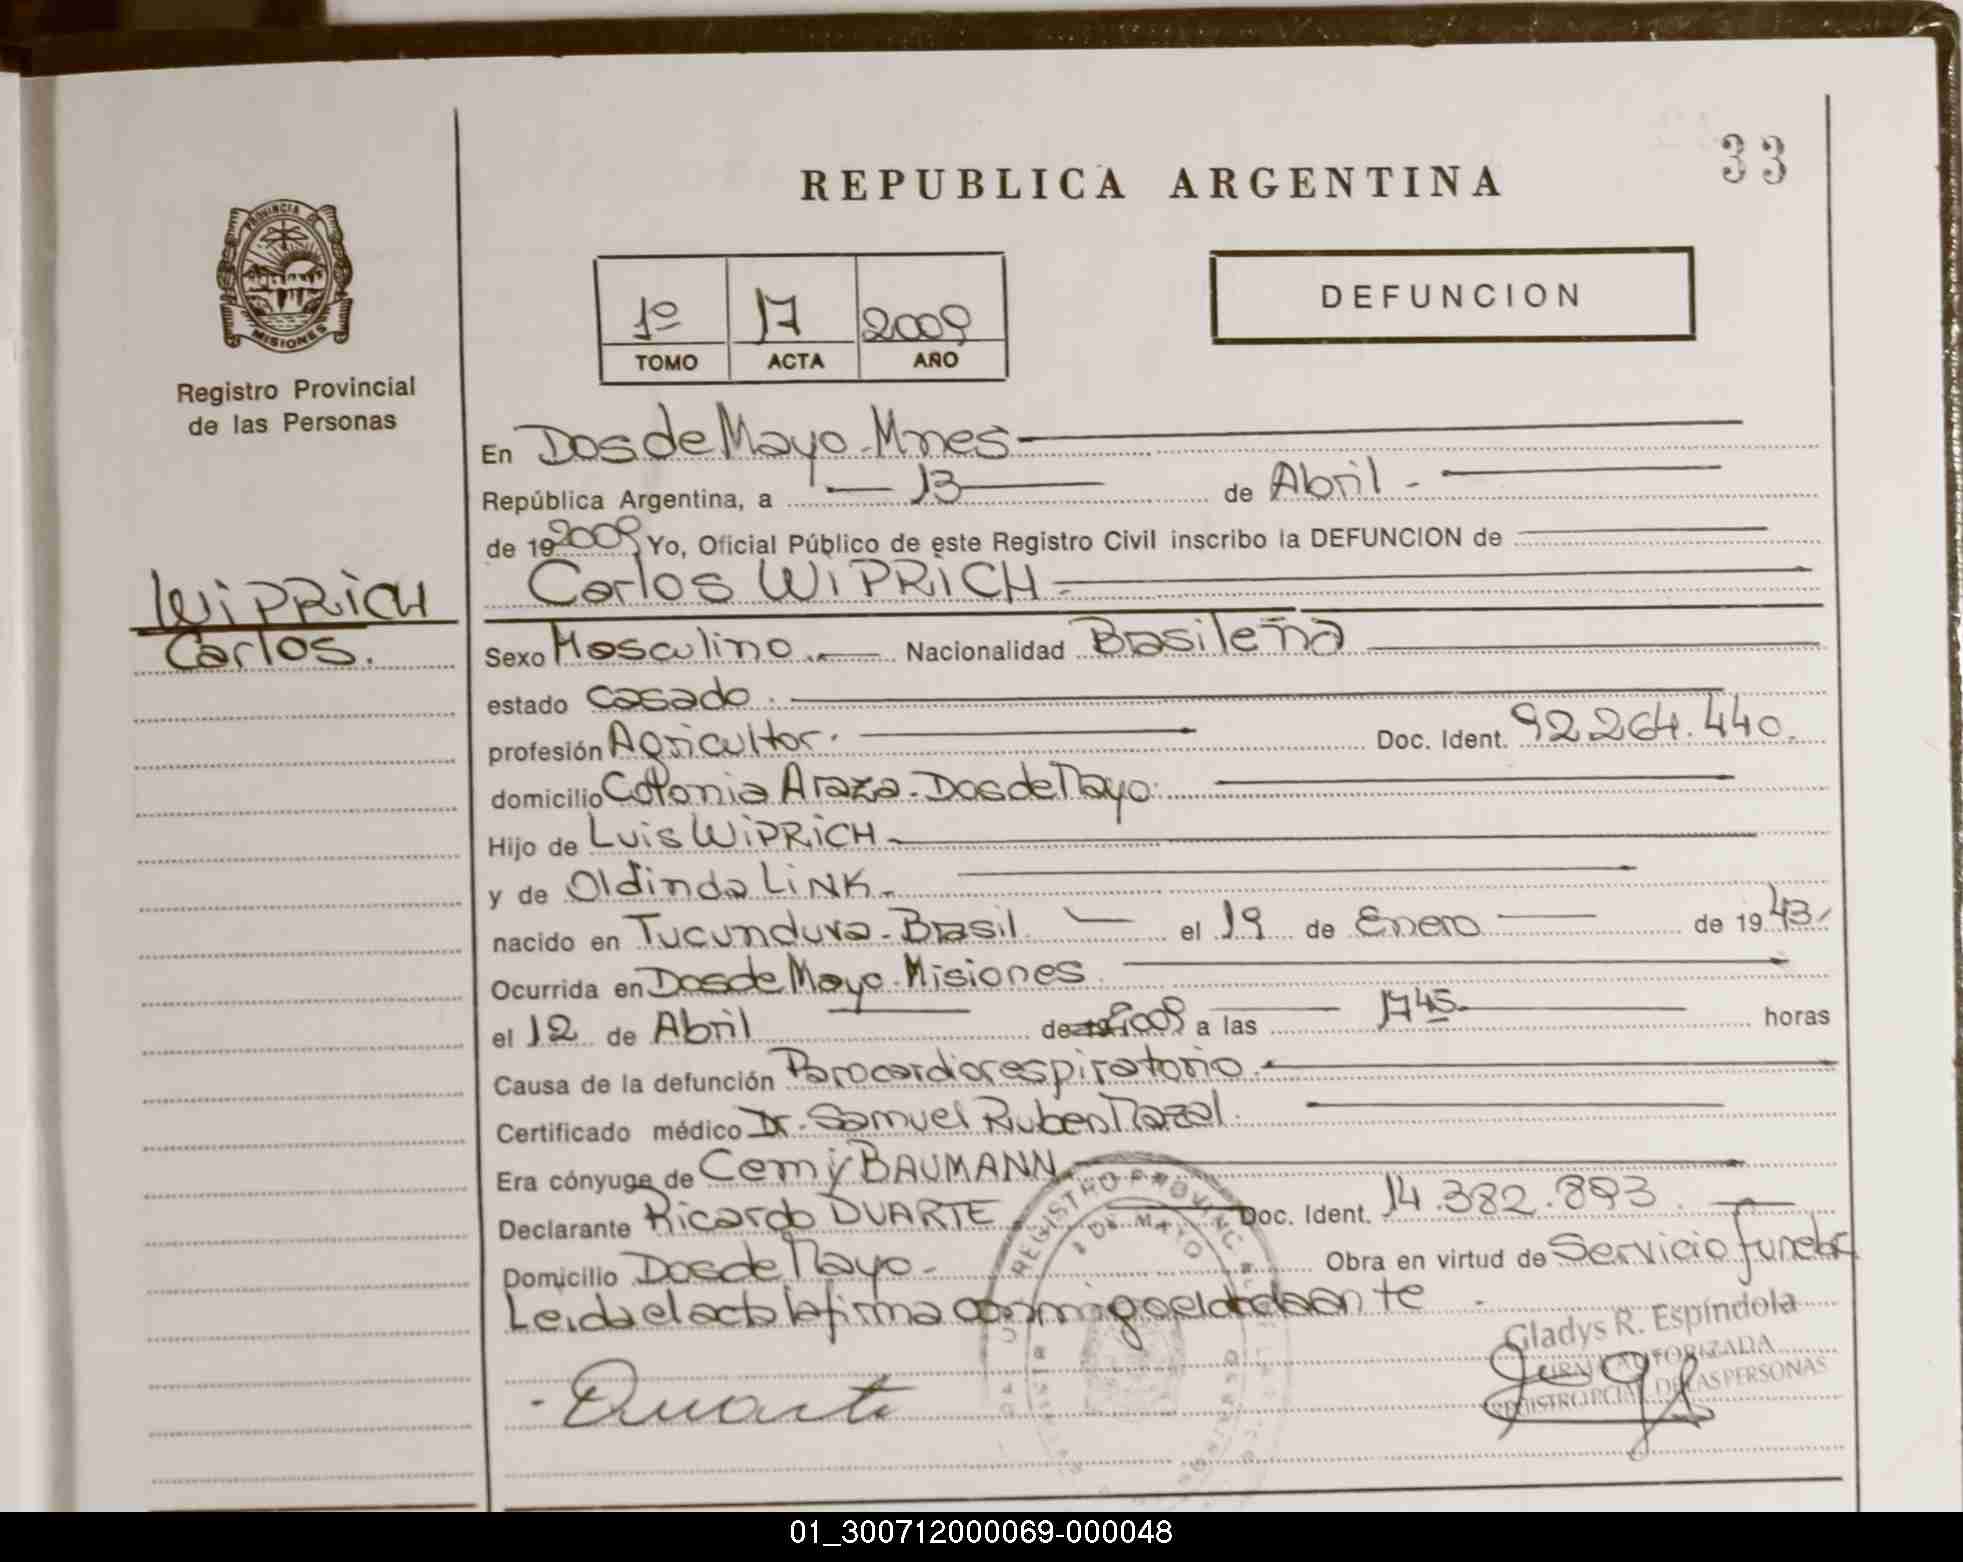 33
REPUBLICA ARGENTINA
PROVINCIA DE
MISIONES
Registro Provincial
de las Personas
1º 17 2009
TOMO ACTA AÑO
DEFUNCION
En Dos de Mayo - Mnes
República Argentina, a 13 de Abril -
de 19 2009 Yo, Oficial Público de este Registro Civil inscribo la DEFUNCION de
Carlos WiPRiCH
WiPRiCH
Carlos.
Sexo Masculino Nacionalidad Brasileña
estado casado.
profesión Agricultor. Doc. Ident. 92.264.440.
domicilio Colonia Araza - Dos de Mayo.
Hijo de Luis WiPRiCH
y de Oldinda LiNK.
nacido en Tucunduva - Brasil el 19 de Enero de 19 43
Ocurrida en Dos de Mayo - Misiones
el 12 de Abril de 19 2009 a las 17 45 horas
Causa de la defunción Parocardiorespiratorio.
Certificado médico Dr. Samuel Ruben Mazal.
Era cónyuge de Cemy BAUMANN
Declarante Ricardo DUARTE Doc. Ident. 14.382.893.
Domicilio Dos de Mayo - Obra en virtud de Servicio funebre
Leida el acta la firma conmigo el declarante
REGISTRO PROVINC
DE MAYO
Gladys R. Espíndola
AUTORIZADA
REGISTRO PCIAL. DE LAS PERSONAS
Duarte
01_300712000069-000048